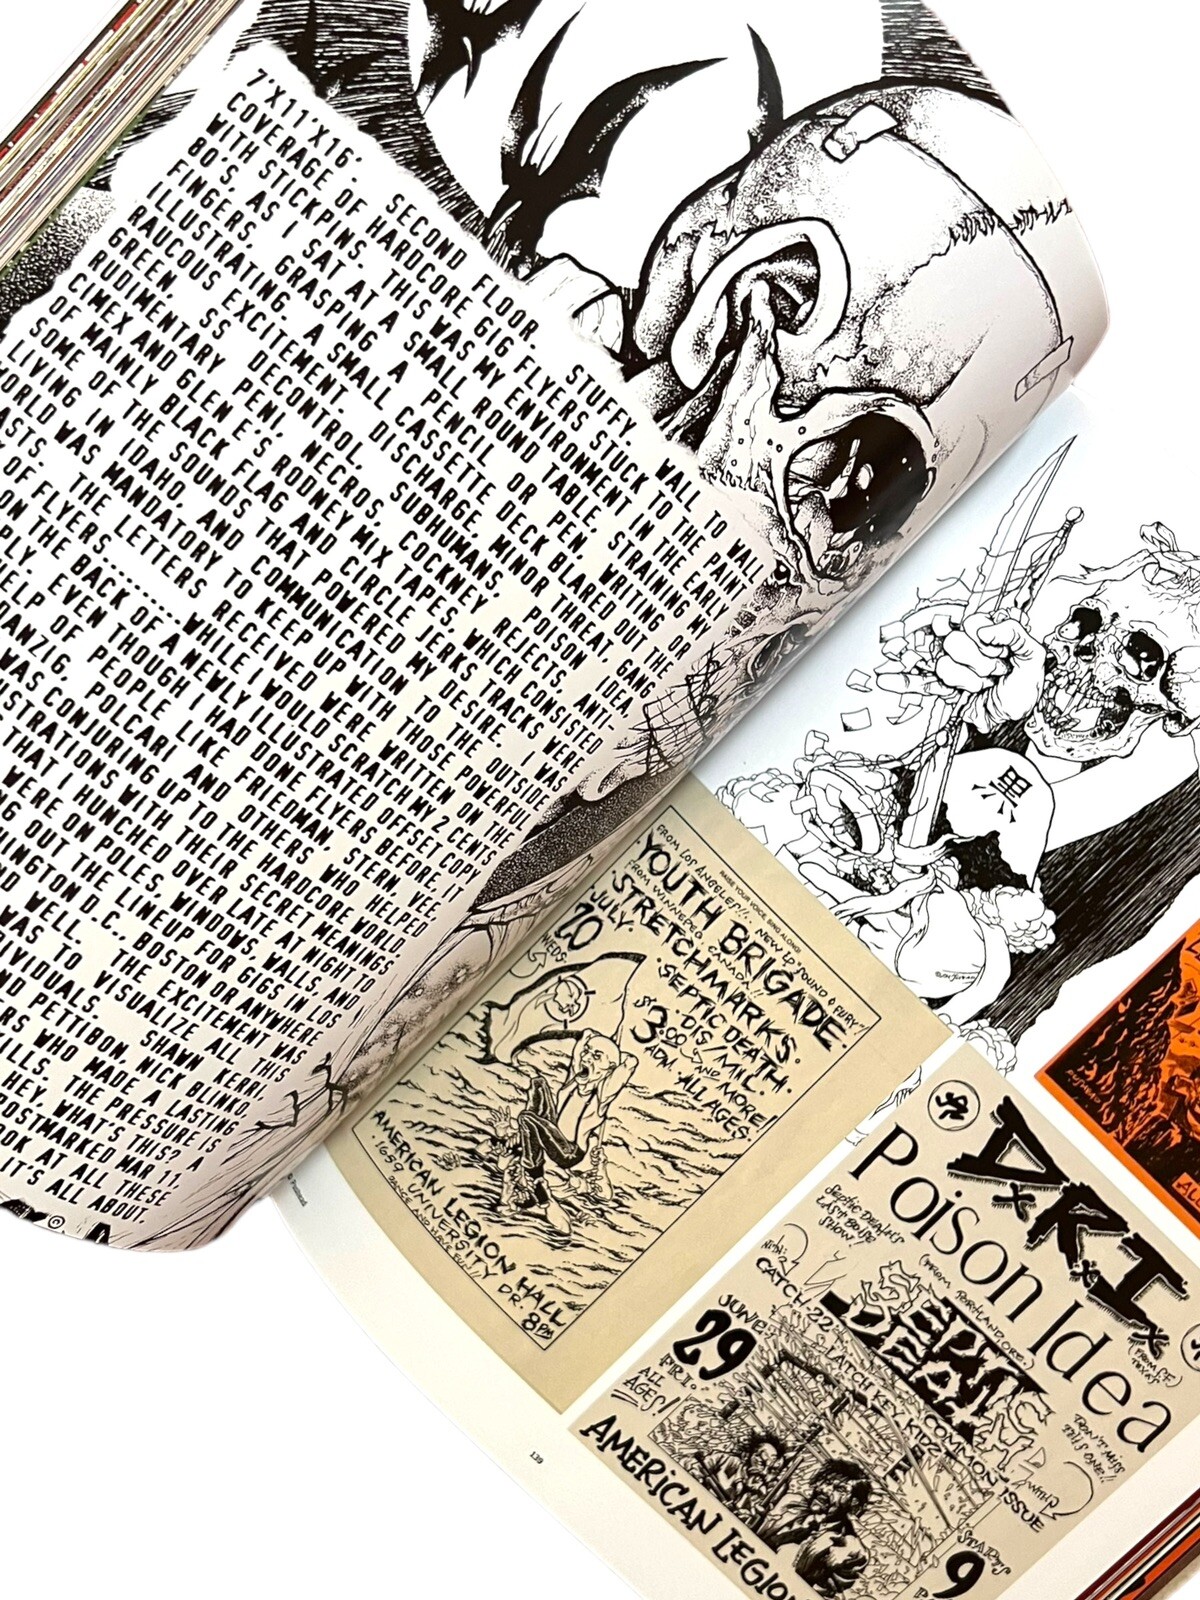 7'X11'X16'. SECOND FLOOR. STUFFY. WALL TO WALL
COVERAGE OF HARDCORE GIG FLYERS STUCK TO THE PAINT
WITH STICKPINS. THIS WAS MY ENVIRONMENT IN THE EARLY
80'S, AS I SAT AT A SMALL ROUND TABLE, STRAINING MY
FINGERS, GRASPING A PENCIL OR PEN, WRITING OR
ILLUSTRATING. A SMALL CASSETTE DECK BLARED OUT THE
RAUCOUS EXCITEMENT. DISCHARGE, MINOR THREAT, GANG
GREEN, SS DECONTROL, SUBHUMANS, POISON IDEA,
RUDIMENTARY PENI, NECROS, COCKNEY REJECTS, ANTI-
CIMEX AND GLEN E'S RODNEY MIX TAPES, WHICH CONSISTED
OF MAINLY BLACK FLAG AND CIRCLE JERKS TRACKS WERE
SOME OF THE SOUNDS THAT POWERED MY DESIRE. I WAS
LIVING IN IDAHO, AND COMMUNICATION TO THE OUTSIDE
WORLD WAS MANDATORY TO KEEP UP WITH THOSE POWERFUL
THE LETTERS RECEIVED WERE WRITTEN ON THE
OF FLYERS...... WHILE I WOULD SCRATCH MY 2 CENTS
ON THE BACK OF A NEWLY ILLUSTRATED OFFSET COPY
EVEN THOUGH I HAD DONE FLYERS BEFORE, IT
HELP OF PEOPLE LIKE FRIEDMAN, STERN, VEE,
DANZIG, POLCARI AND OTHERS WHO HELPED
WAS CONJURING UP TO THE HARDCORE WORLD
WITH THEIR SECRET MEANINGS
THAT I HUNCHED OVER LATE AT NIGHT TO
WERE ON POLES, WINDOWS, WALLS, AND
OUT THE LINEUP FOR GIGS IN LOS
D.C., BOSTON OR ANYWHERE
WELL. THE EXCITEMENT WAS
WAS TO VISUALIZE ALL THIS
SHAWN KERRI,
PETTIBON, NICK BLINKO,
WHO MADE A LASTING
THE PRESSURE IS
HEY, WHAT'S THIS? A
POSTMARKED MAR 11,
AT ALL THESE
IT'S ALL ABOUT.
黒
RAISE YOUR VOICE SING ALONG!
FROM LOS ANGELES!!. NEW LP "SOUND & FURY"!
·YOUTH BRIGADE·
FROM WINNEPEG, CANADA!!
·STRETCHMARKS·
·SEPTIC DEATH·
·DIS/MXL·
AND MORE!
JULY 20
WEDS
$3.00 ADM. ALL AGES
AMERICAN LEGION HALL
·1659 UNIVERSITY DR. 8PM
DANCE AND HAVE FUN!!!
139
DxRxIx
FROM (SF) TEXAS
Poison Idea
(FROM PORTLAND, ORE.)
SEPTIC DEATH'S LAST BOISE SHOW!
WITH:
SEPTIC DEATH
CATCH-22
LATCH KEY KIDZ
COMMON ISSUE
DON'T MISS THIS ONE!!
JUNE 29 FRI.
ALL AGES!
AMERICAN LEGION
STARTS 9